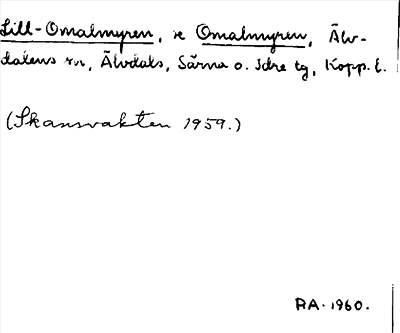 Lill-Omalmyren, se Omalmyren, Älv-
dalens sn, Älvdals, Särna o. Idre tg, Kopp. l.
(Skansvakten 1959.)
RA. 1960.